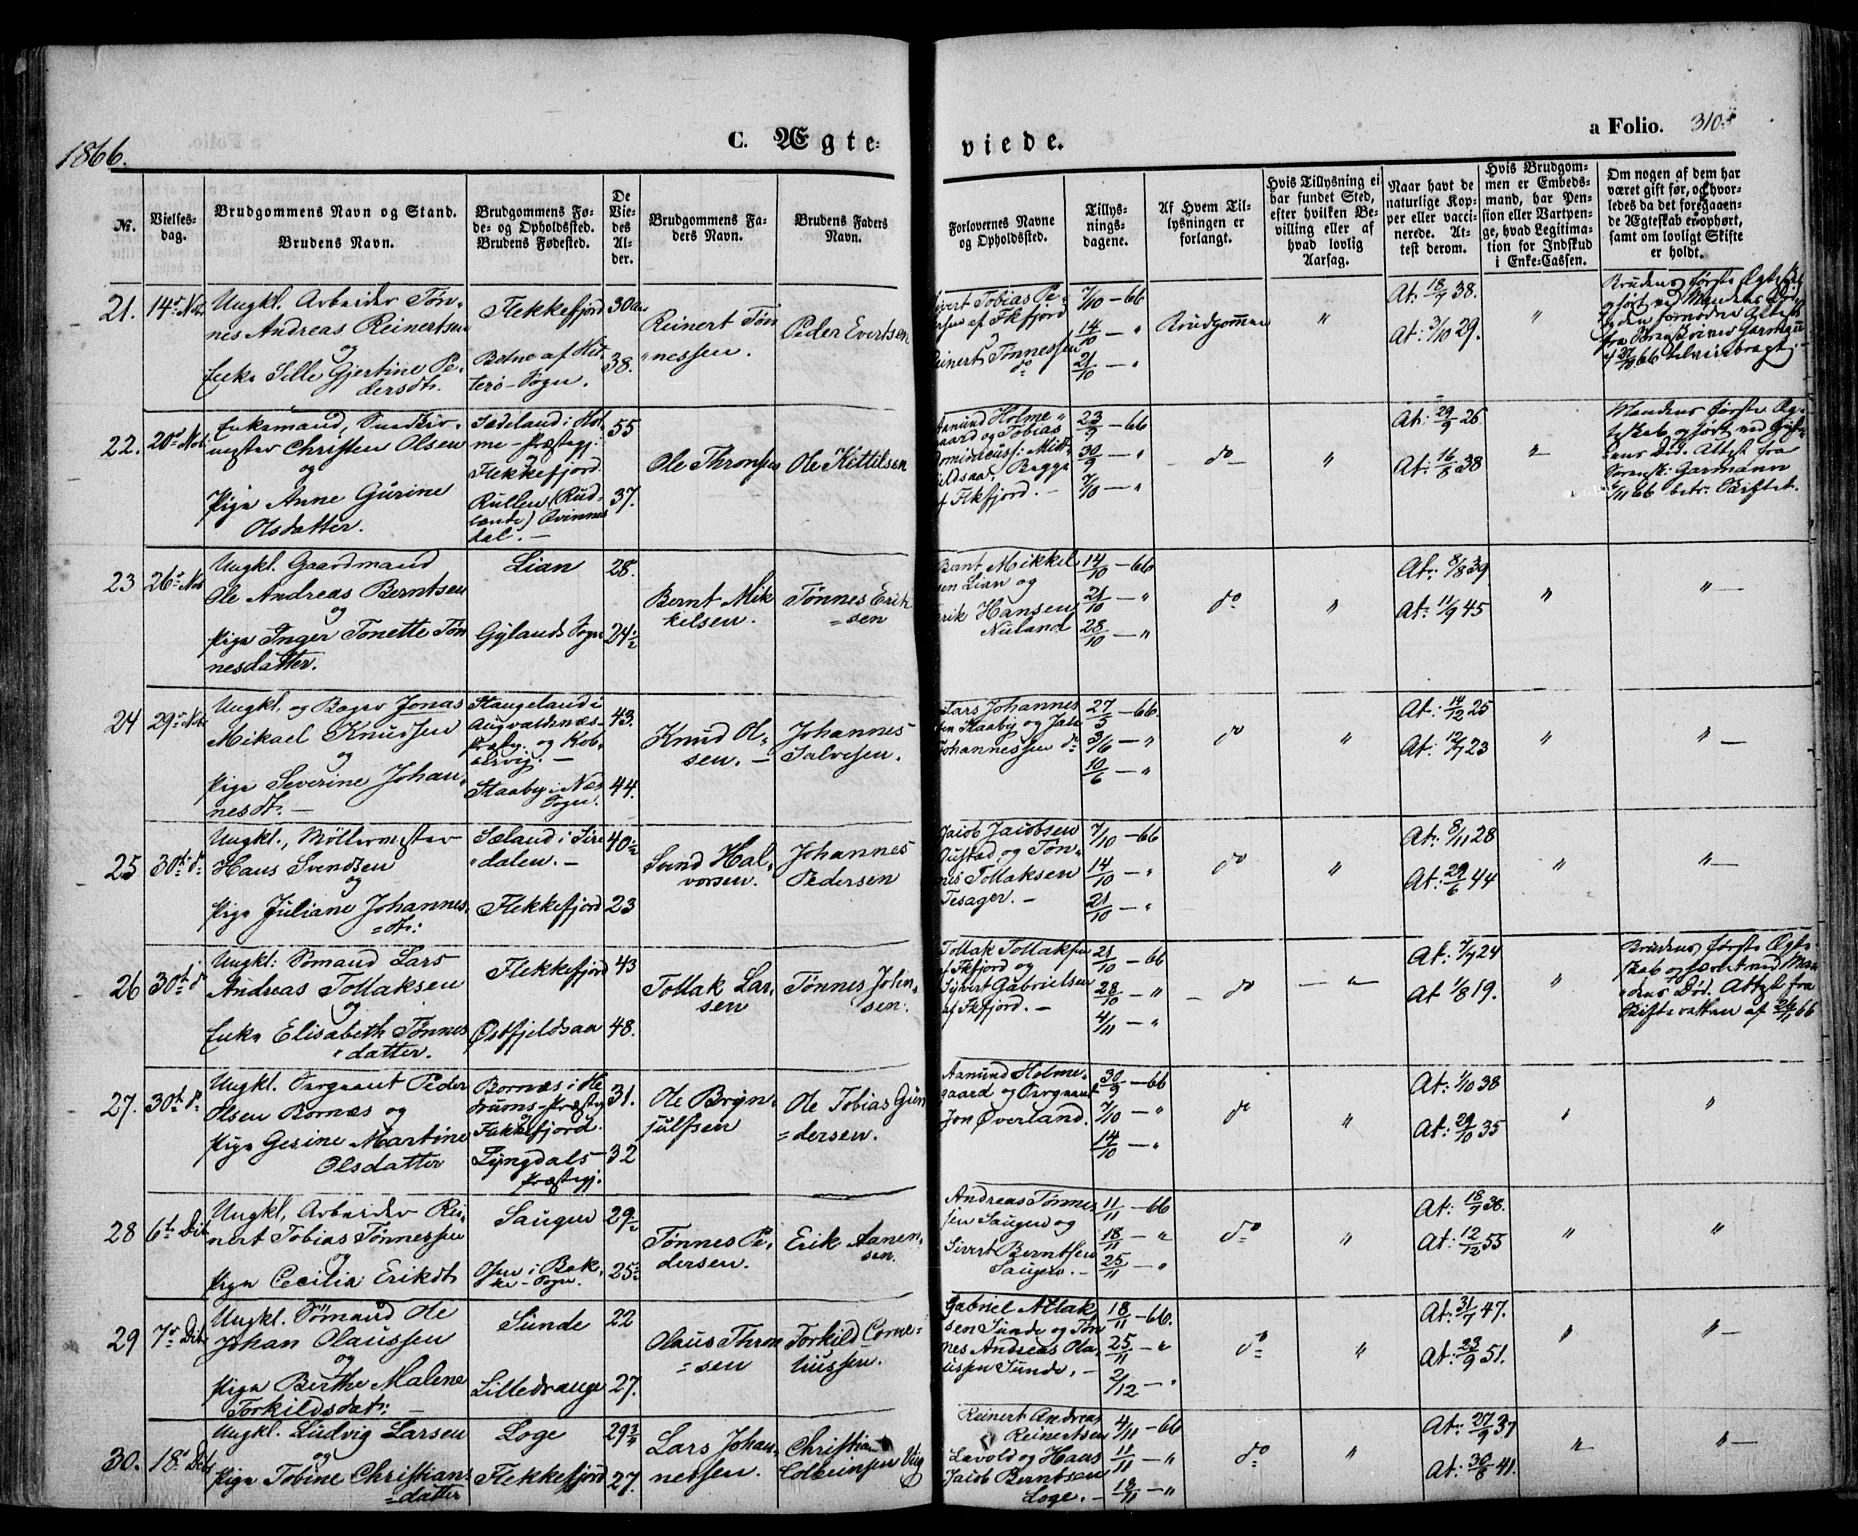 1866.
C. Ægte-
viede.
a Folio. 310
No.
Vielses-
dag.
Brudgommens Navn og Stand.
Brudens Navn.
Brudgommens Fø-
de- og Opholdssted.
Brudens Fødested.
De
Vie-
des
Al-
der.
Brudgommens Fa-
ders Navn.
Brudens Faders
Navn.
Forlovernes Navne
og Opholdssted.
Tillys-
nings-
dagene.
Af Hvem Til-
lysningen er
forlangt.
Hvis Tillysning ei
har fundet Sted,
efter hvilken Be-
villing eller af
hvad lovlig
Aarsag.
Naar havt de
naturlige Kop-
per eller vacci-
nerede. At-
test derom.
Hvis Brudgom-
men er Embeds-
mand, har Pen-
sion eller Vartpen-
ge, hvad Legitima-
tion for Indskud
i Enke-Cassen.
Om nogen af dem har
været gift før, og hvor-
ledes da det foregaaen-
de Ægteskab er ophørt,
samt om lovligt Skifte
er holdt.
21. 14de Nov.
Ungkl. Arbeider Tøn-
nes Andreas Reinertsen
og
Enke Sille Gjertine Pe-
dersdtr.
Flekkefjord
Botne af Hit-
terø-Sogn.
30
38.
Reinert Tøn-
nessen.
Peder Evertsen
Sivert Tobias Pe-
ersen af Fkfjord
Reinert Tønnessen
do
7/10 - 66
14/10 - "
21/10 - "
Brudgommen
"
At: 18/7 38.
At: 3/10 29.
"
Brudens første Ægtesk.
ophørt ved Mandens Død,
66 tilveiebragt.
22. 20de Nov.
Enkemand, Snedker-
mester Christen Olsen
og
Pige Anne Gurine
Olsdatter.
Sædeland i Hol-
me-Præstegj:
og
Flekkefjord.
Rullen (Rud-
lænde) Qvinnes-
dal. -
55
37.
Ole Thronsen
Ole Kittilsen
Aamund Holme-
gaard og Tobias
Bægge
af Fkfjord. -
23/9 - 66
30/9 - "
7/10 - "
do
"
At: 29/9 26
At: 16/8 38
"
Mandens første Æg-
teskab ophørt ved Hustru-
ens Død. Attest fra
Sorensk: Garmann
6/11 66 betr: Skiftet.
23 26de Nov
Ungkl. Gaardmand
Ole Andreas Berntsen
og
Pige Inger Tonette Tøn-
nesdatter.
Lian
Gylands Sogn
28.
24 1/2
Bernt Mik-
kelsen.
Tønnes Erik-
sen
Bernt Mikkel-
sen Lian og
Erik Hansen
Nuland
14/10 - 66
21/10 - "
28/10 - "
do
"
At: 8/8 39
At: 11/9 45
"
"
24 29de Nov
Ungkl. og Bager Jonas
Mikael Knudsen
og
Pige Severine Johan-
nesdtr. -
Stangeland i
Augvaldsnæs-
Præstg. og Kob-
bervig. -
Staaby i Næs
Sogn.
43.
44.
Knud Ol-
sen. -
Johannes
Salvesen.
Lars Johannes-
sen Staaby og
Johannessen do
27/5 - 66.
3/6 - "
10/6 - "
do
"
At: 14/12 25
At: 12/7 23
"
"
25 30te do
Ungkl., Møllermester
Hans Svendsen
og
Pige Juliane Johannes-
dtr:
Sæland i Sire-
dalen. -
Flekkefjord
40 1/2
23
Svend Hal-
vorsen.
Johannes
Pedersen
Jacob Jacobsen
og Tøn-
nes Tollaksen
Tesager. -
7/10 - 66
14/10 - "
21/10 - "
do
"
At: 8/11 28
At: 29/6 44
"
"
26 30te do
Ungkl: Sømand Lars
Andreas Tollaksen
og
Enke Elisabeth Tønnes-
datter.
Flekkefjord
Østfjeldsaa
43
48.
Tollak Lar-
sen
Tønnes John-
sen.
Tollak Tollaksen
af Fkfjord og
Syvert Gabrielsen
af Fkfjord. -
21/10 - 66
28/10 - "
4/11 - "
do
"
At. 7/7 24
At 1/8 19.
"
Brudens første Ægte-
skab
Mandens Død. Attest fra
Skifteretten af 26/11 66
27. 30te do
Ungkl. Sergeant Peder
Olsen Bornæs og
Pige Gesine Martine
Olsdatter
Bornæs i He-
drums-Præstg
og
Flekkefjord.
Lyngdals-
Præstegj:
31.
32
Ole Bryn-
julfsen
Ole Tobias Gun-
dersen.
Aamund Holme-
gaard og Sergeant
Jon Øverland.
30/9 - 66
7/10 - "
14/10 - "
do
"
At: 1/10 38
At: 29/10 35
"
"
28 6te Dec
Ungkl, Arbeider Rei-
nert Tobias Tønnessen
og
Pige Cecilia Eriksdtr
Saugen
Osen i Bak-
ke-Sogn.
29 1/2
25
Tønnes Pe-
dersen.
Erik Aanen-
sen.
Andreas Tønnes-
sen Saugen og
Sivert Berntsen
Saugen. -
11/11 - 66
18/11 - "
25/11 - "
do
"
At: 18/7 38.
At: 12/12 55
"
"
29 7de Dec
Ungkl. Sømand Ole
Johan Olaussen
og
Pige Berthe Malene
Torkildsdatr: -
Sunde
Lilledrange
22
27.
Olaus Thron-
sen
Torkild Corne-
liussen.
Gabriel Atlak-
sen Sunde og Tøn-
nes Andreas Ola-
ussen Sunde. -
18/11 - 66.
25/11 - "
2/12 - "
do
"
At: 31/7 47.
At: 23/9 51.
"
"
30. 18de Dec
Ungkl. Ludvig Larsen
og
Pige Tobine Christians-
datter
Loge
Flekkefjord
29 3/4
27.
Lars Johan-
nessen.
Christian
Reinert Andreas
Reinertsen
Lavold og Hans
Jacob Berntsen
Loge. -
4/11 - 66
11/11 - "
18/11 - "
do
"
At: 27/9 37
At: 30/8 41.
"
"